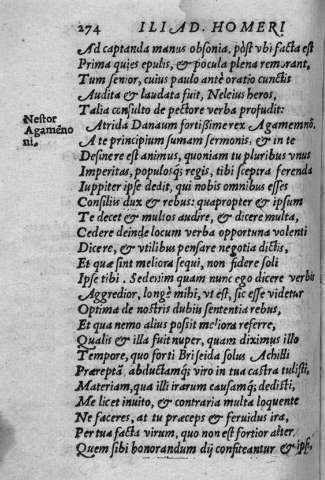 274 ILIAD. HOMERI
Ad captanda manus obsonia, pòst vbi facta est
Prima quies epulis, & pocula plena remorant,
Tum senior, cuius paulo antè oratio cunctis
Audita & laudata fuit, Neleius heros,
Talia consulto de pectore verba profudit:
Nestor
Agamēno
ni.
Atrida Danaum fortißime rex Agamemnō,
A te principium sumam sermonis, & in te
Desinere est animus, quoniam tu pluribus vnus
Imperitas, populosq; regis, tibi sceptra ferenda
Iuppiter ipse dedit, qui nobis omnibus esses
Consiliis dux & rebus: quapropter & ipsum
Te decet & multos audire, & dicere multa,
Cedere deinde locum verba opportuna volenti
Dicere, & vtilibus pensare negotia dictis,
Et quæ sint meliora sequi, non fidere soli
Ipse tibi. Sed enim quam nunc ego dicere verbis
Aggredior, longè mihi, vt est, sic esse videtur
Optima de nostris dubiis sententia rebus,
Et qua nemo alius posiit meliora referre,
Qualis & illa fuit nuper, quam diximus illo
Tempore, quo forti Briseida solus Achilli
Præreptā, abductamq; viro in tua castra tulisti,
Materiam, qua illi irarum causamq; dedisti,
Me licet inuito, & contraria multa loquente
Ne faceres, at tu præceps & feruidus ira,
Per tua facta virum, quo non est fortior alter,
Quem sibi honorandum dij confiteantur & ipsi,